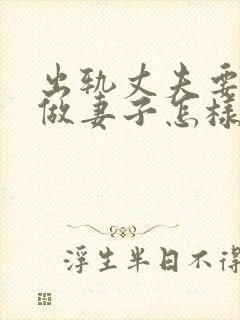 出轨丈夫要
做妻子怎样
浮生半日不得